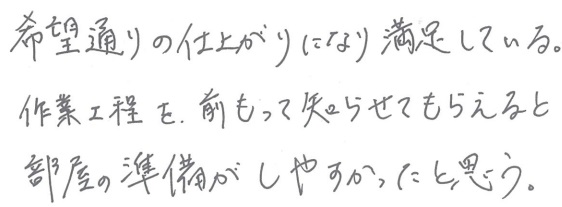 希望通りの仕上がりになり満足している。
作業工程を、前もって知らせてもらえると
部屋の準備がしやすかったと思う。